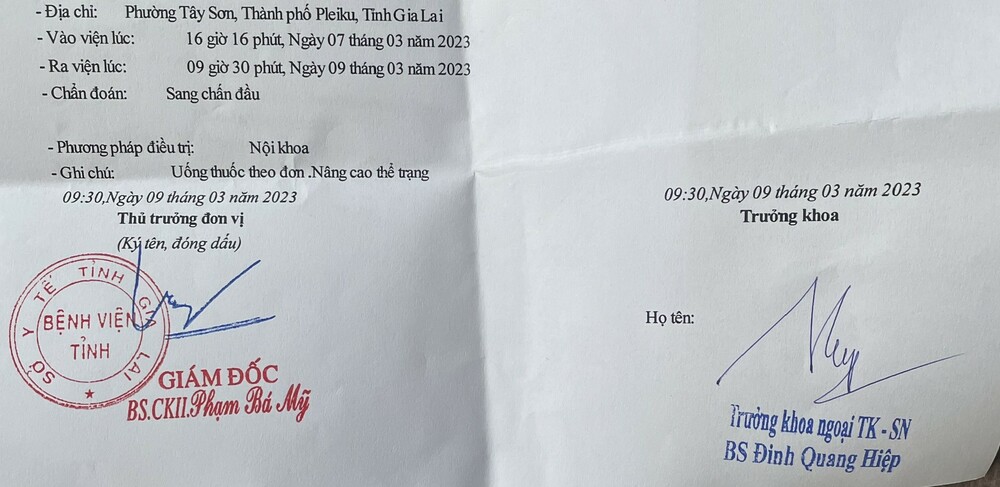 - Địa chỉ: Phường Tây Sơn, Thành phố Pleiku, Tỉnh Gia Lai
- Vào viện lúc: 16 giờ 16 phút, Ngày 07 tháng 03 năm 2023
- Ra viện lúc: 09 giờ 30 phút, Ngày 09 tháng 03 năm 2023
- Chẩn đoán: Sang chấn đầu
- Phương pháp điều trị: Nội khoa
- Ghi chú: Uống thuốc theo đơn .Nâng cao thể trạng
09:30,Ngày 09 tháng 03 năm 2023
Thủ trưởng đơn vị
(Ký tên, đóng dấu)
SỞ Y TẾ TỈNH GIA LAI
BỆNH VIỆN
TỈNH
GIÁM ĐỐC
BS.CKII.Phạm Bá Mỹ
09:30,Ngày 09 tháng 03 năm 2023
Trưởng khoa
Họ tên:
Trưởng khoa ngoại TK - SN
BS Đinh Quang Hiệp